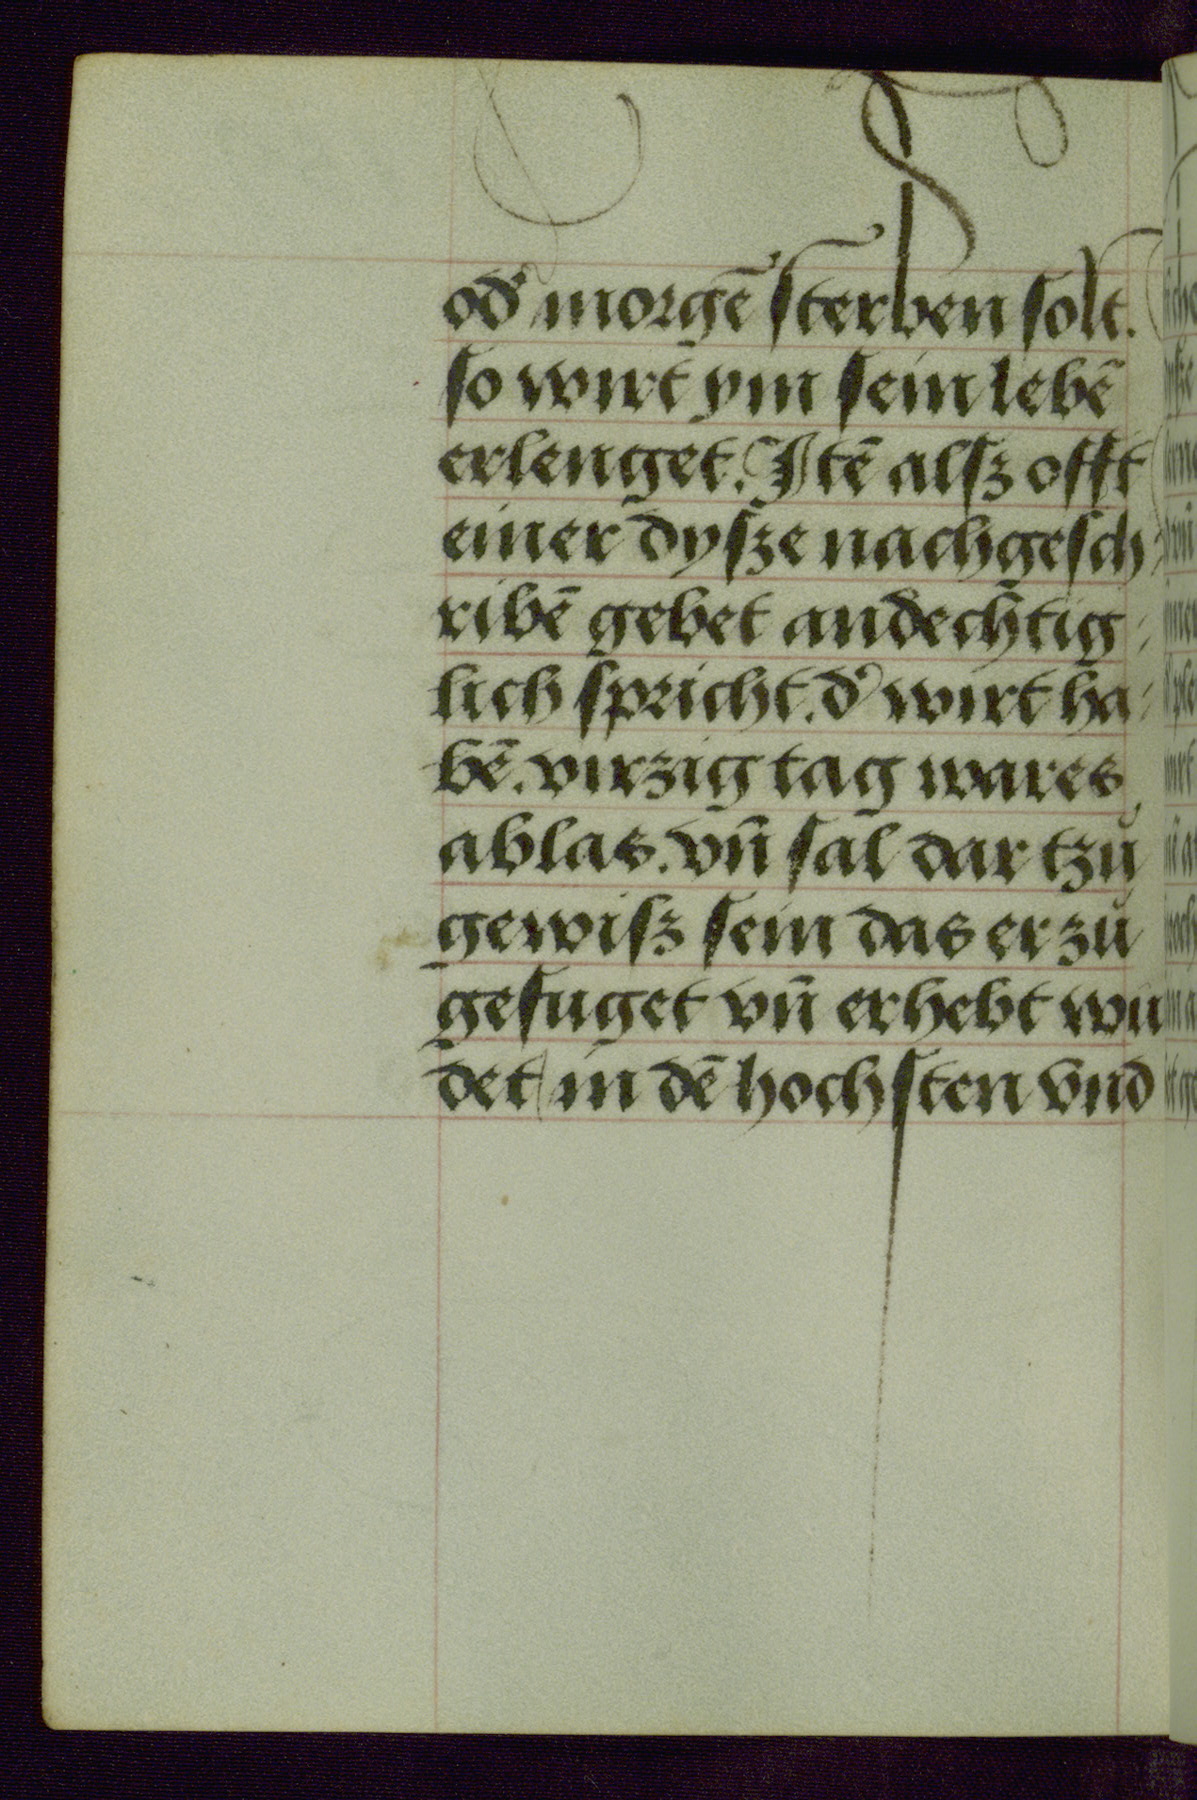 od' morgē sterben solt.
so wirt ym sein lebē
erlenget. Itē alsz offt
einer dysze nachgesch
ribē gebet andechtig
lich spricht. d' wirt ha
bē. virzig tag wares
ablas. vn̄ sal dar tzu
gewisz sein das er zu
gefuget vn̄ erhebt wu
det in dē hochsten vnd